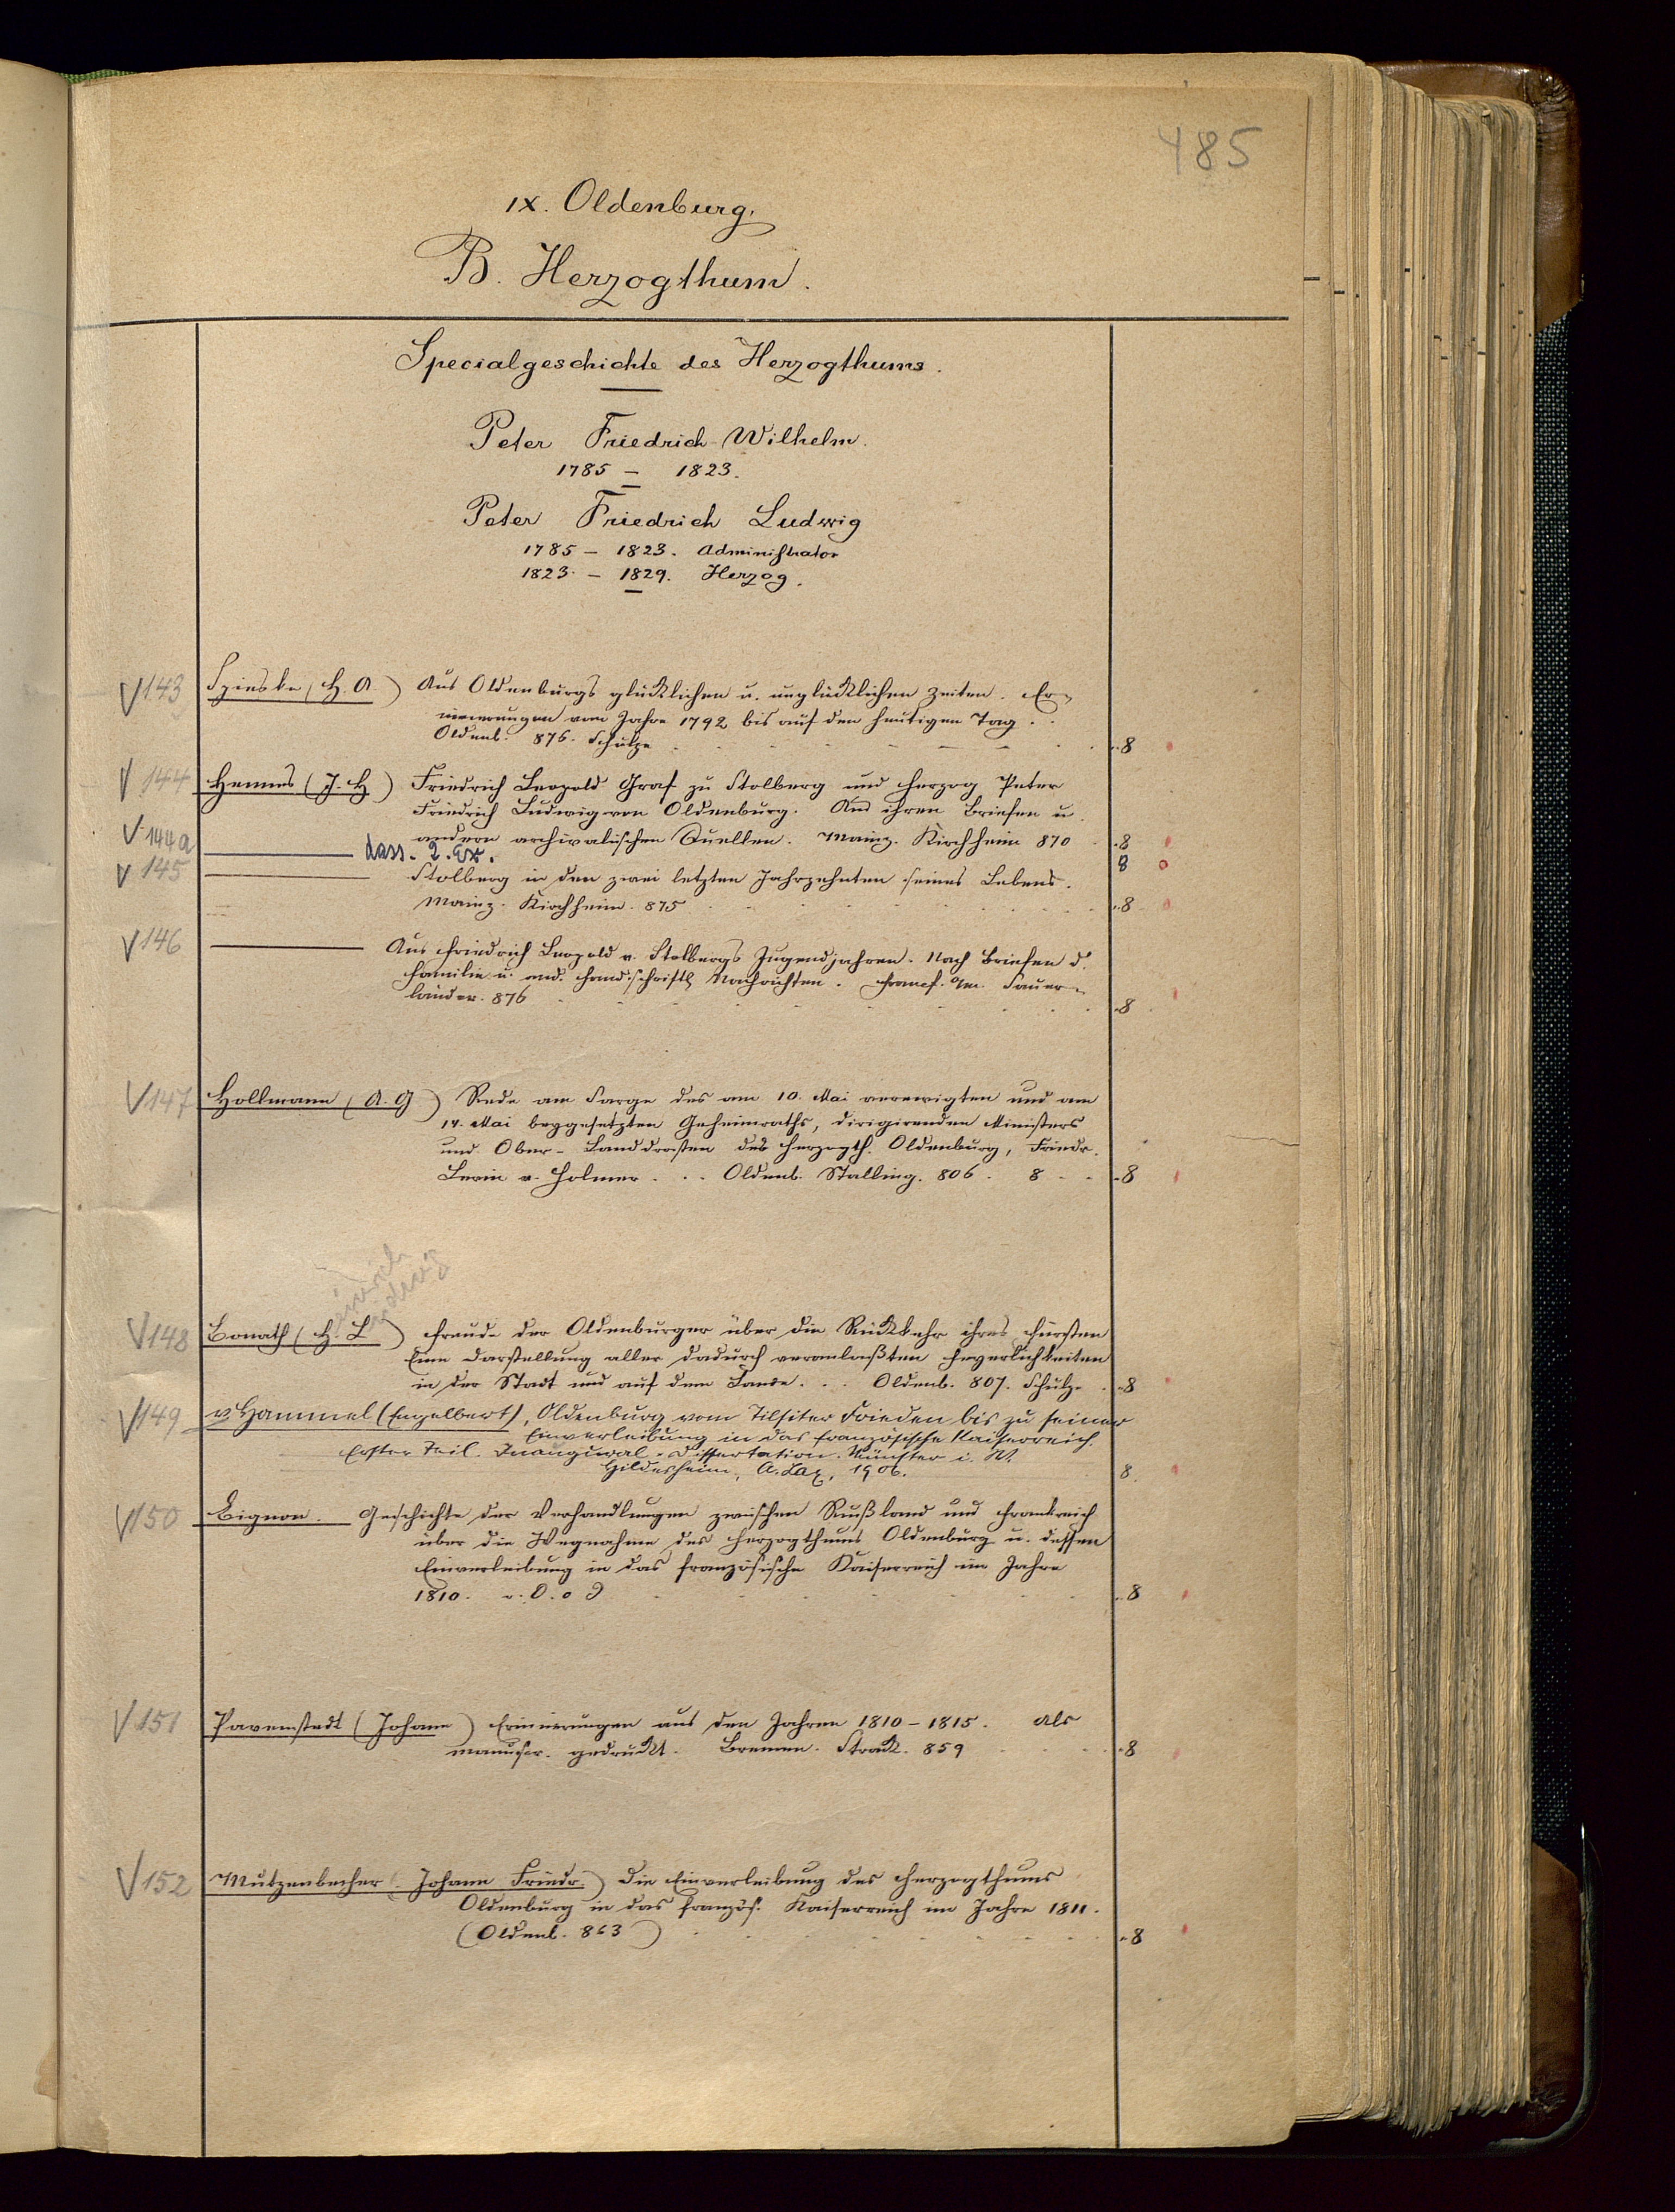 485
IX. Oldenburg.
B. Herzogthum.
Specialgeschichte des Herzogthums.
Peter Friedrich Wilhelm.
1785 – 1823.
Peter Friedrich Ludwig
1785 – 1823. Administrator
1823 – 1829. Herzog.
V 143 (H. A.) Aus Oldenburgs glücklichen u. unglücklichen Zeiten. Er-
innerungen vom Jahre 1792 bis auf den heutigen Tag.
Oldenb. 876. Schulze 8
V 144 Hennes (J. H.) Friedrich Leopold Graf zu Stolberg und Herzog Peter
Friedrich Ludwig von Oldenburg. Aus ihren Briefen u.
andern archivalischen Quellen. Mainz. Kirchheim 870 8
V 144a dass. 2. Ex. 8
V 145 Stolberg in den zwei letzten Jahrzehnten seines Lebens.
Mainz. Kirchheim. 875 8
V 146 Aus Friedrich Leopold v. Stolbergs Jugendjahren. Nach Briefen d.
Familie u. and. handschriftl. Nachrichten. Frankf. a/m. Sauer-
länder. 876 8
V 147 Hollmann (A. G) Rede am Sarge des am 10. Mai verewigten und am
14. Mai beygesetzten Geheimraths, dirigirenden Ministers
und Ober-Landdrosten des Herzogth. Oldenburg, Friedr.
Levin v. Holmer . . . Oldenb. Stalling. 806. 8 8
Heinrich
Ludwig
V 148 Bonath (H. L.) Freude der Oldenburger über die Rückkehr ihres Fürsten
Eine Darstellung aller dadurch veranlaßten Feyerlichkeiten
in der Stadt und auf dem Lande. . . Oldenb. 807. Schulze 8
V 149 v Hammel (Engelbert), Oldenburg vom Tilsiter Frieden bis zu seiner
Einverleibung in das französische Kaiserreich.
Erster Teil. Inaugural-Dissertation. Münster i. W.
Hildesheim, A. Lax, 1906. 8.
V 150 Bignon. Geschichte der Verhandlungen zwischen Rußland und Frankreich
über die Wegnahme des Herzogthums Oldenburg u. dessen
Einverleibung in das französische Kaiserreich im Jahre
1810. 8
V 151 Pavenstedt (Johann) Erinnerungen aus den Jahren 1810–1815. Als
manuscr. gedruckt. Bremen. Strack. 859 8
V 152 Mutzenbecher (Johann Friedr.) Die Einverleibung des Herzogthums
Oldenburg in das französ. Kaiserreich im Jahre 1811.
(Oldenb. 863) 8